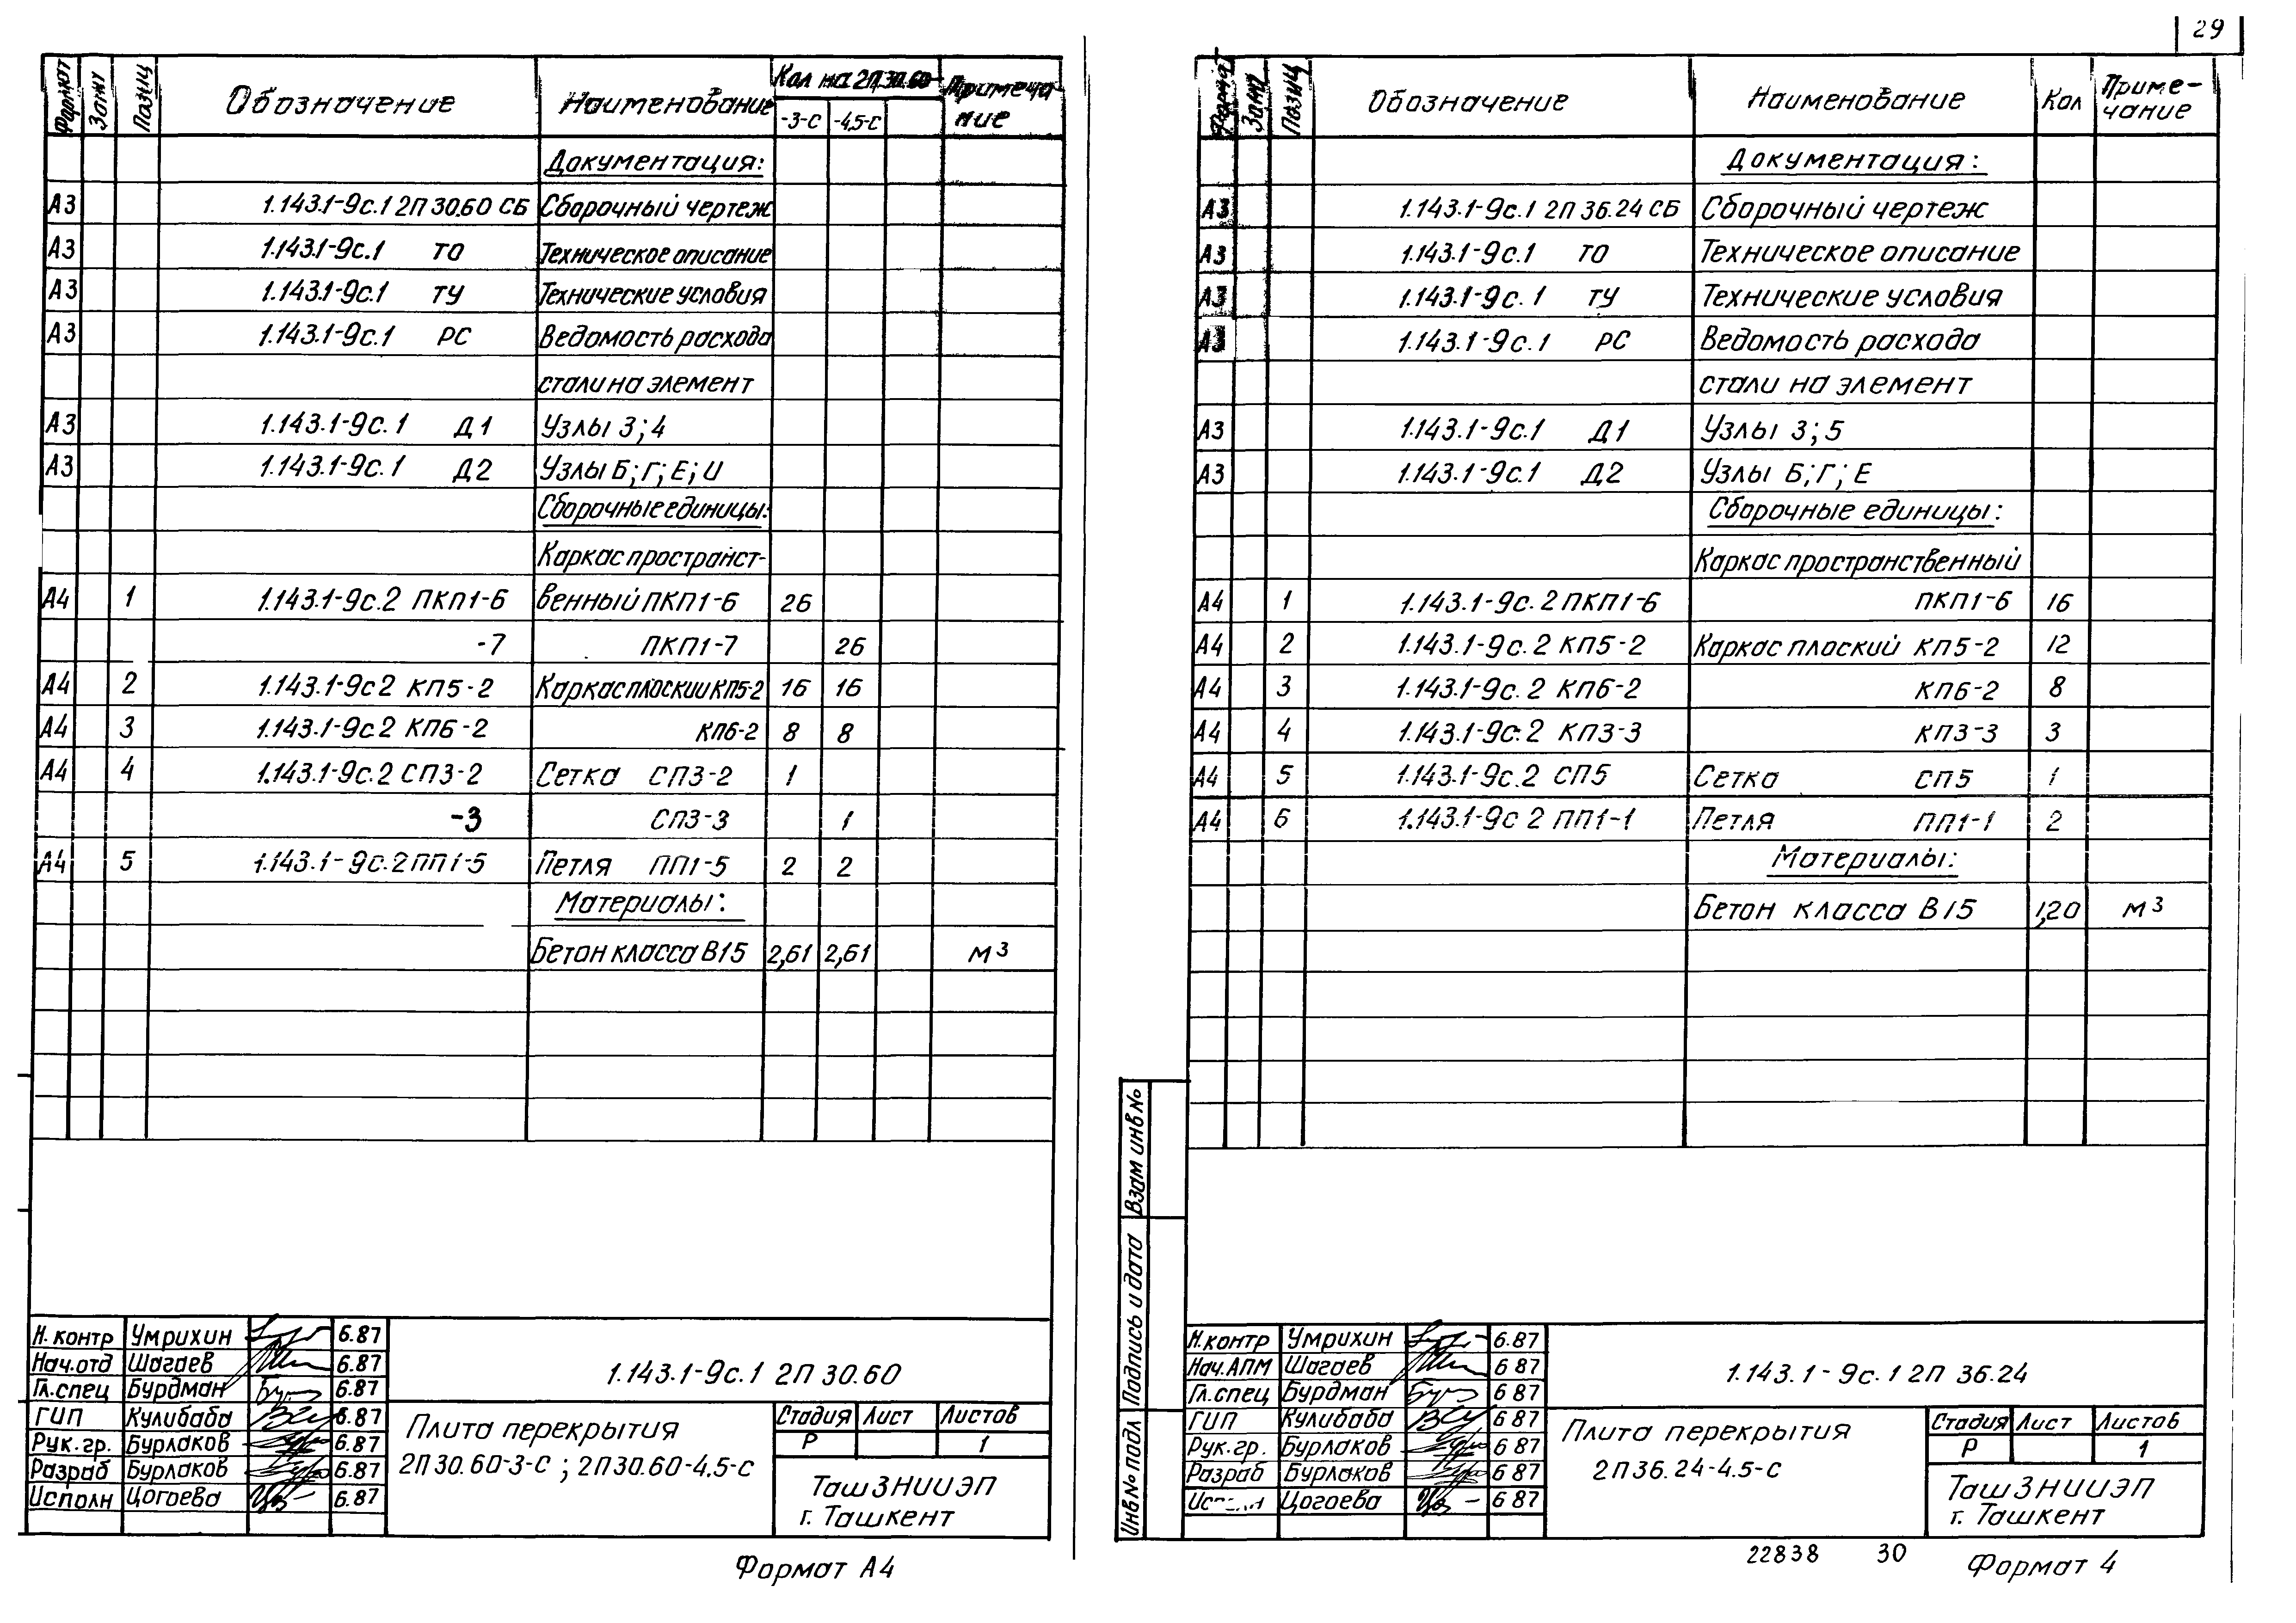 29
Формат Зона Позиц Обозначение Наименование Кол на 2П30.60- Примечание
-3-с -4,5-с
Документация:
А3 1.143.1-9с.1 2П30.60 СБ Сборочный чертеж
А3 1.143.1-9с.1 ТО Техническое описание
А3 1.143.1-9с.1 ТУ Технические условия
А3 1.143.1-9с.1 РС Ведомость расхода
стали на элемент
А3 1.143.1-9с.1 Д1 Узлы 3; 4
А3 1.143.1-9с.1 Д2 Узлы Б; Г; Е; И
Сборочные единицы:
Каркас пространст-
А4 1 1.143.1-9с.2 ПКП1-6 венный ПКП1-6 26
-7 ПКП1-7 26
А4 2 1.143.1-9с2 КП5-2 Каркас плоский КП5-2 16 16
А4 3 1.143.1-9с.2 КП6-2 КП6-2 8 8
А4 4 1.143.1-9с.2 СП3-2 Сетка СП3-2 1
-3 СП3-3 1
А4 5 1.143.1-9с.2 ПП1-5 Петля ПП1-5 2 2
Материалы:
Бетон класса В15 2,61 2,61 м3
Н.контр Умрихин 6.87
Нач.отд Шагаев 6.87
Гл.спец Бурдман 6.87
ГИП Кулибаба 6.87
Рук.гр. Бурлаков 6.87
Разраб Бурлаков 6.87
Исполн Цогоева 6.87
1.143.1-9с.1 2П 30.60
Плита перекрытия
2П30.60-3-с ; 2П30.60-4,5-с
Стадия Лист Листов
Р 1
ТашЗНИИЭП
г. Ташкент
Формат А4
Формат Зона Позиц Обозначение Наименование Кол Приме-
чание
Документация:
А3 1.143.1-9с.1 2П 36.24 СБ Сборочный чертеж
А3 1.143.1-9с.1 ТО Техническое описание
А3 1.143.1-9с.1 ТУ Технические условия
А3 1.143.1-9с.1 РС Ведомость расхода
стали на элемент
А3 1.143.1-9с.1 Д1 Узлы 3; 5
А3 1.143.1-9с.1 Д2 Узлы Б; Г; Е
Сборочные единицы:
Каркас пространственный
А4 1 1.143.1-9с.2 ПКП1-6 ПКП1-6 16
А4 2 1.143.1-9с.2 КП5-2 Каркас плоский КП5-2 12
А4 3 1.143.1-9с.2 КП6-2 КП6-2 8
А4 4 1.143.1-9с.2 КП3-3 КП3-3 3
А4 5 1.143.1-9с.2 СП5 Сетка СП5 1
А4 6 1.143.1-9с 2 ПП1-1 Петля ПП1-1 2
Материалы:
Бетон класса В15 1,20 м3
Взам инв №
Подпись и дата
Инв № подл
Н.контр Умрихин 6.87
Нач.АПМ Шагаев 6 87
Гл.спец Бурдман 6 87
ГИП Кулибаба 6 87
Рук.гр. Бурлаков 6 87
Разраб Бурлаков 6 87
Цогоева 6 87
1.143.1-9с.1 2П 36.24
Плита перекрытия
2П36.24-4.5-с
Стадия Лист Листов
Р 1
ТашЗНИИЭП
г. Ташкент
22838 30 Формат 4